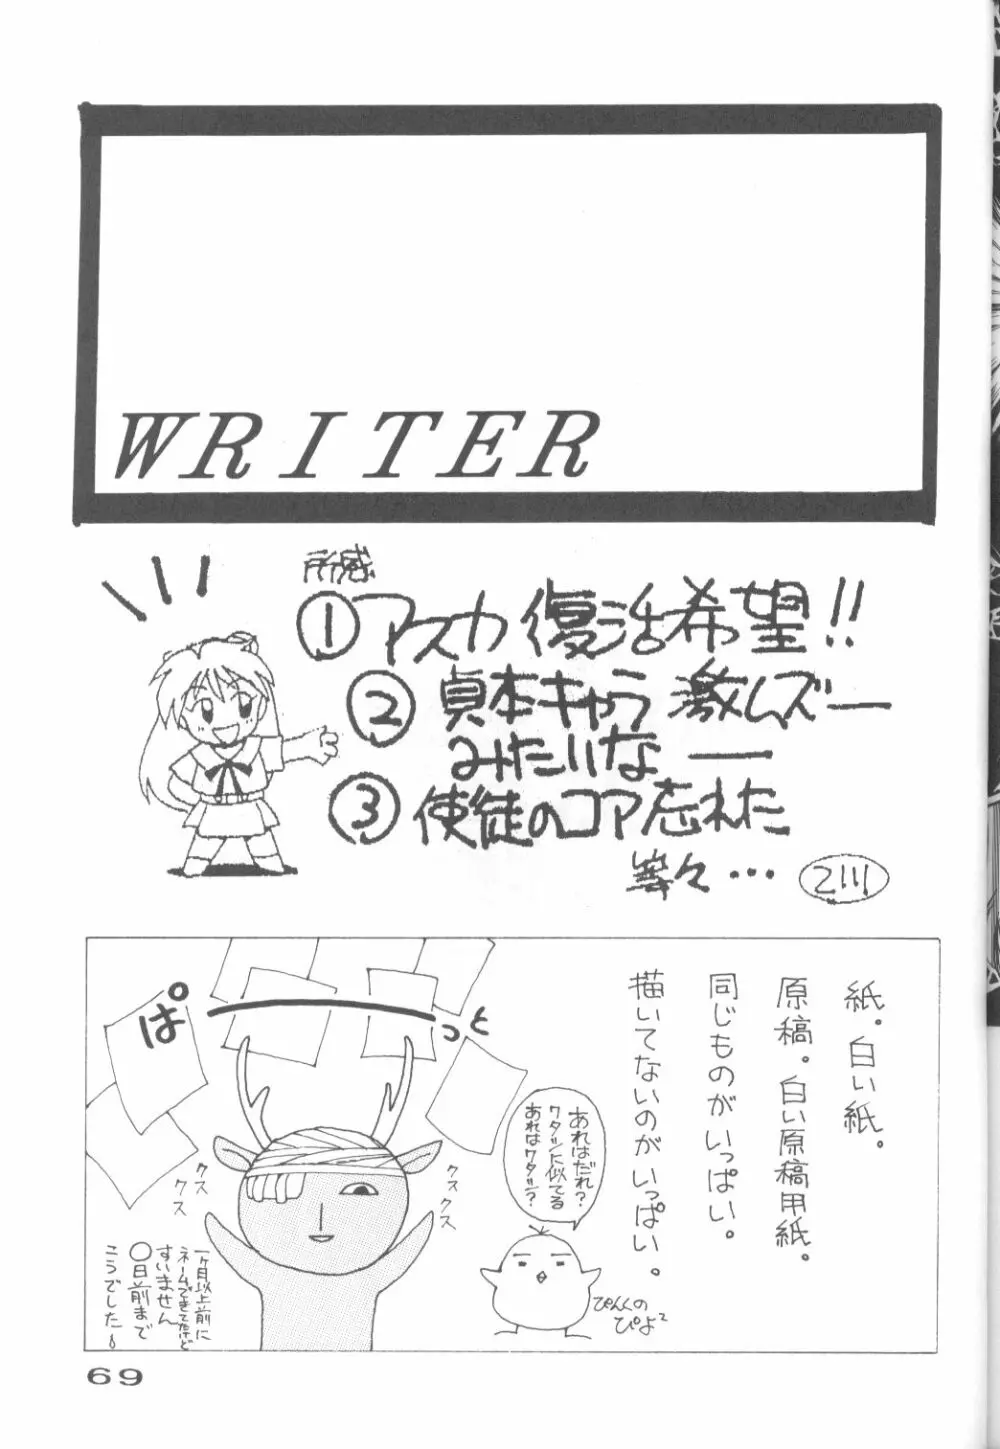 WRITER
所感
①アスカ復活希望!!
②貞本キャラ激ムズー
みたいなー
③使徒のコア忘れた
等々…
紙。白い紙。
原稿。白い原稿用紙。
同じものがいっぱい。
描いてないのがいっぱい。
ぱーっと
あれはだれ?
ワタシに似てる
あれはワタシ?
ぴんくの
ぴよ2
クスクス
クス
クス
クス
一ヶ月以上前に
ネームできてたけど
すいません
〇日前まで
こうでした
69